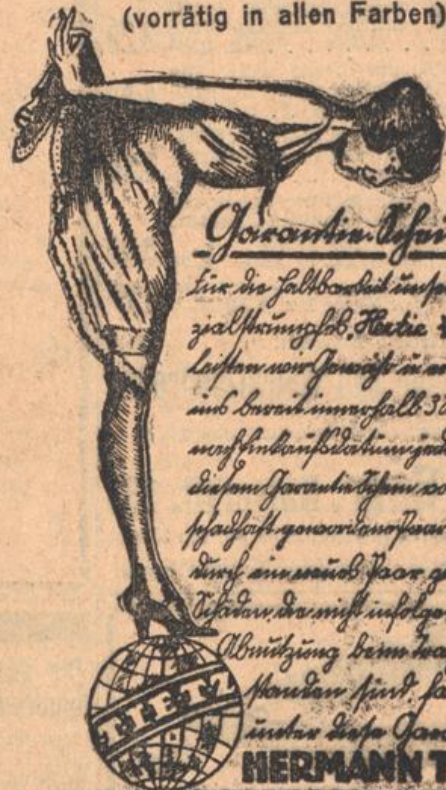 (vorrätig in allen Farben)
Garantie-Schein
Für die Haltbarkeit unse
zialstrumpfes "Hertie
leisten wir Gewähr u. er
uns bereit innerhalb 30
nach Einkaufsdatum jed
diesem Garantie Schein vo
schadhaft gewordene Paar
durch ein neues Paar
Schäden, die nicht infolge
Abnützung beim Tra
standen sind, fa
unter diese Garan
TIETZ
HERMANN T